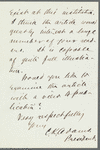 exist at this institution.
I think the article would
greatly interest a large
number of your read-
ers. It is capable
of quite full illustra-
tion.
Would you like to
examine the article
with a view to pub-
lication?
Very respectfully
Yours,
President.